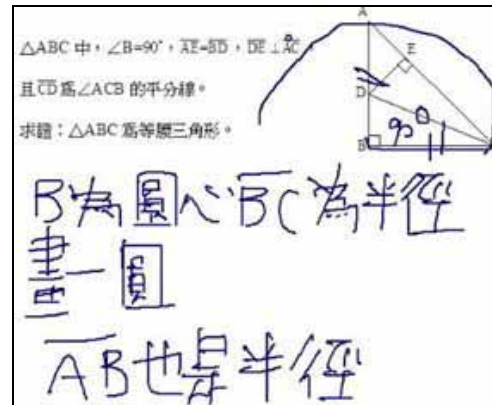 △ABC 中,∠B=90°,AE=BD,DE⊥AC
且CD為∠ACB 的平分線。
求證:△ABC 為等腰三角形。
A
E
D
B
90
B為圓心BC為半徑
畫一圓
AB也是半徑